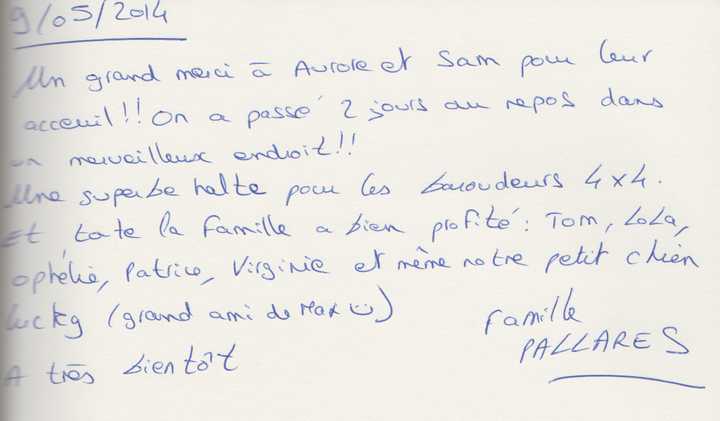 9/05/2014
Un grand merci à Aurore et Sam pour leur
acceuil!! On a passé 2 jours au repos dans
un merveilleux endroit!!
Une superbe halte pour les baroudeurs 4x4.
Et toute la famille a bien profité: Tom, LoLa,
ophélie, Patrice, Virginie et même notre petit chien
lucky (grand ami de Max ☺)
Famille
PALLARES
A très bientôt